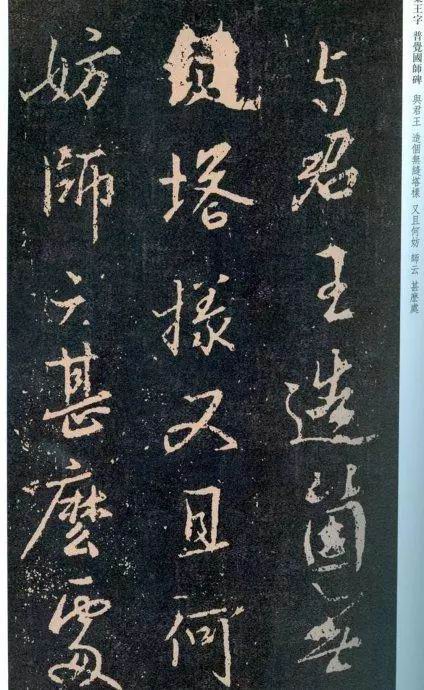 王字 普覺國師碑 與君王 造個無縫塔樣 又且何妨 師云 甚麼處
与君王造箇無
縫塔樣又且何
妨師云甚麼處